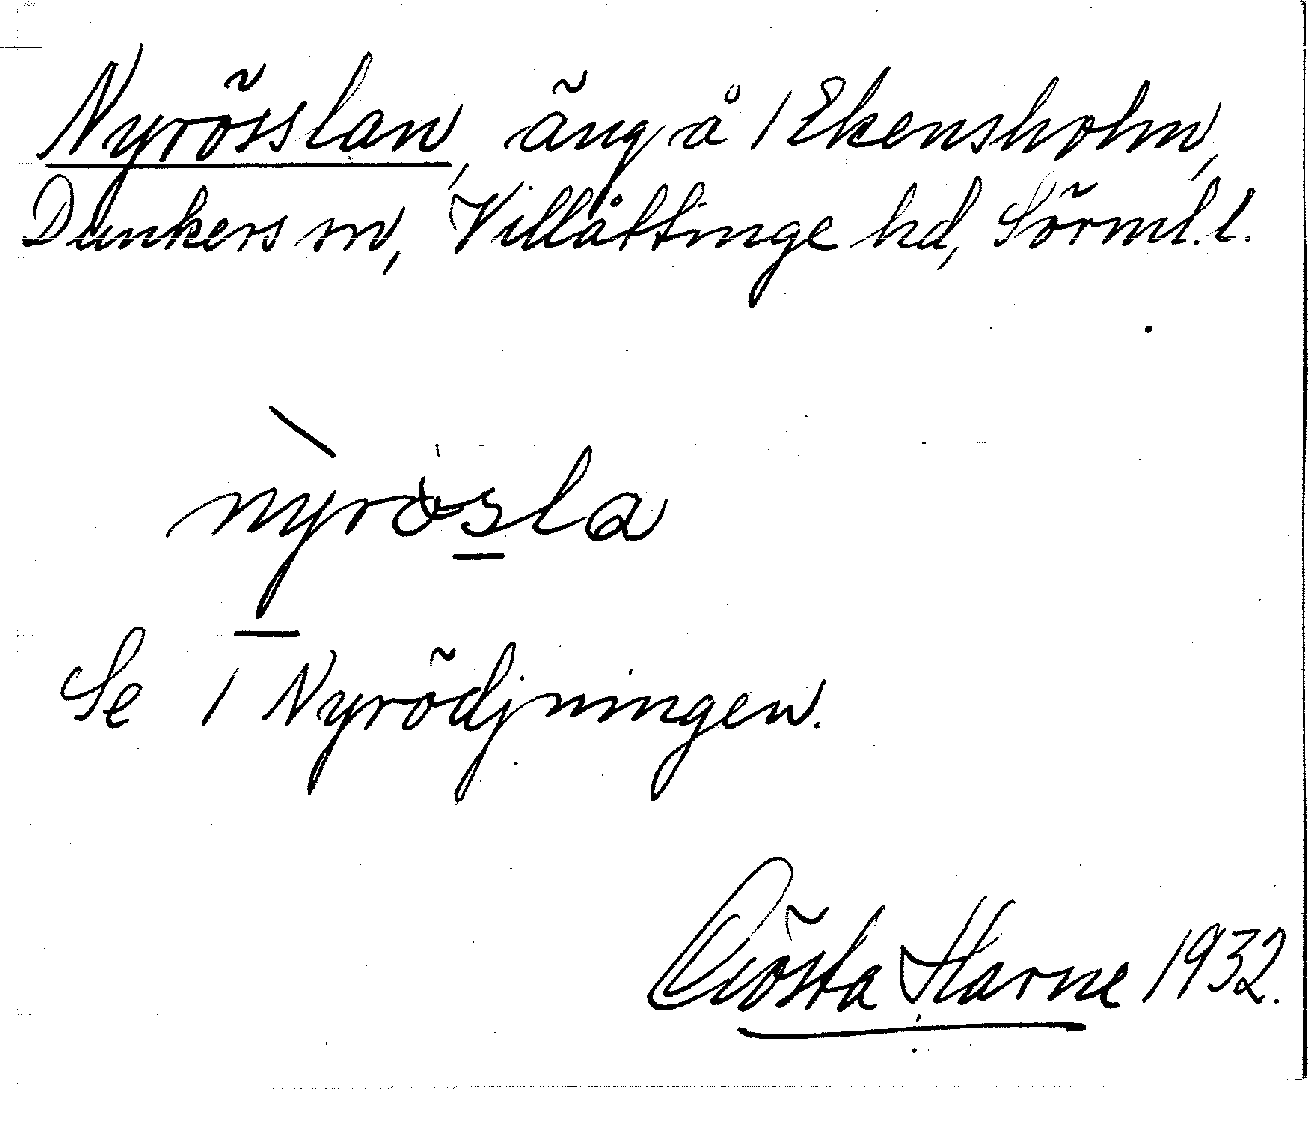 Nyrösslan, äng å /Ekensholm,
Dunkers sn, Villåttinge hd, Sörml.l.
nỳrösla
Se / Nyrödjningen.
Gösta Harne 1932.